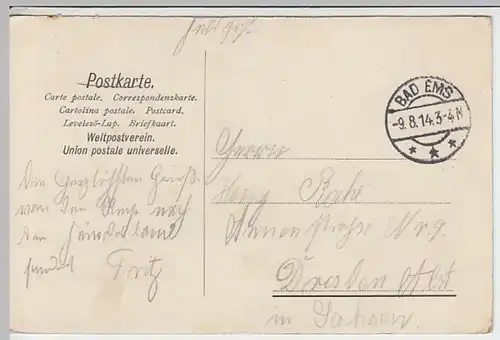 Feldpost
Postkarte.
Carte postale. Correspondenzkarte.
Cartolina postale. Postcard.
Levelező-Lap. Briefkaart.
Weltpostverein.
Union postale universelle.
BAD EMS
-9.8.14.3-4N
Herrn
Den herzlichsten Gruß
von der Reise nach
dem Feindesland
sendet Fritz
Nr 9.
Dresden Alt
in Sachsen.